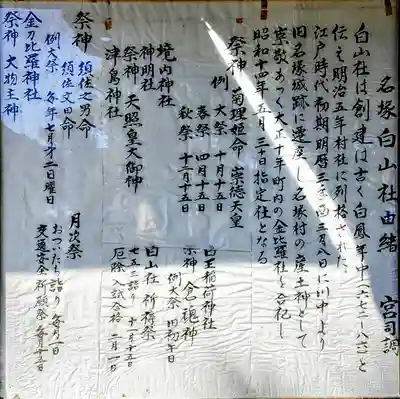 名塚白山社由緒　宮司調
白山社は創建は古く白鳳年中(六七二〜八六)と
伝え明治五年村社に列格された。
江戸時代初期明暦三丁酉三月八日に川中より
旧名塚城跡に遷座し名塚村の産土神として
崇敬あつく大正十年町内の金比羅社を合祀し
昭和十四年五月三日指定社となる
祭神　菊理姫命　崇徳天皇
例大祭　十月十五日
春祭　四月十五日
秋祭　十二月十五日
境内神社
神明社
祭神　天照皇大御神
津島神社
祭神　須佐之男命
須佐文田命
例大祭　毎年七月才二日曜日
金刀比羅神社
祭神　大物主神
白玉稲荷神社
祭神　倉稲魂神
例大祭　旧初午日
白山社　祈祷祭
七五三詣り　十月十五日
厄除　入試合格　二月一日
月次祭
おついたち詣り　毎月一日
交通安全祈願祭　毎月十五日